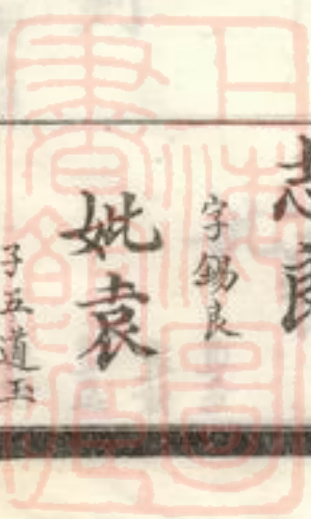 志良
字錫良
妣袁
子五道玉